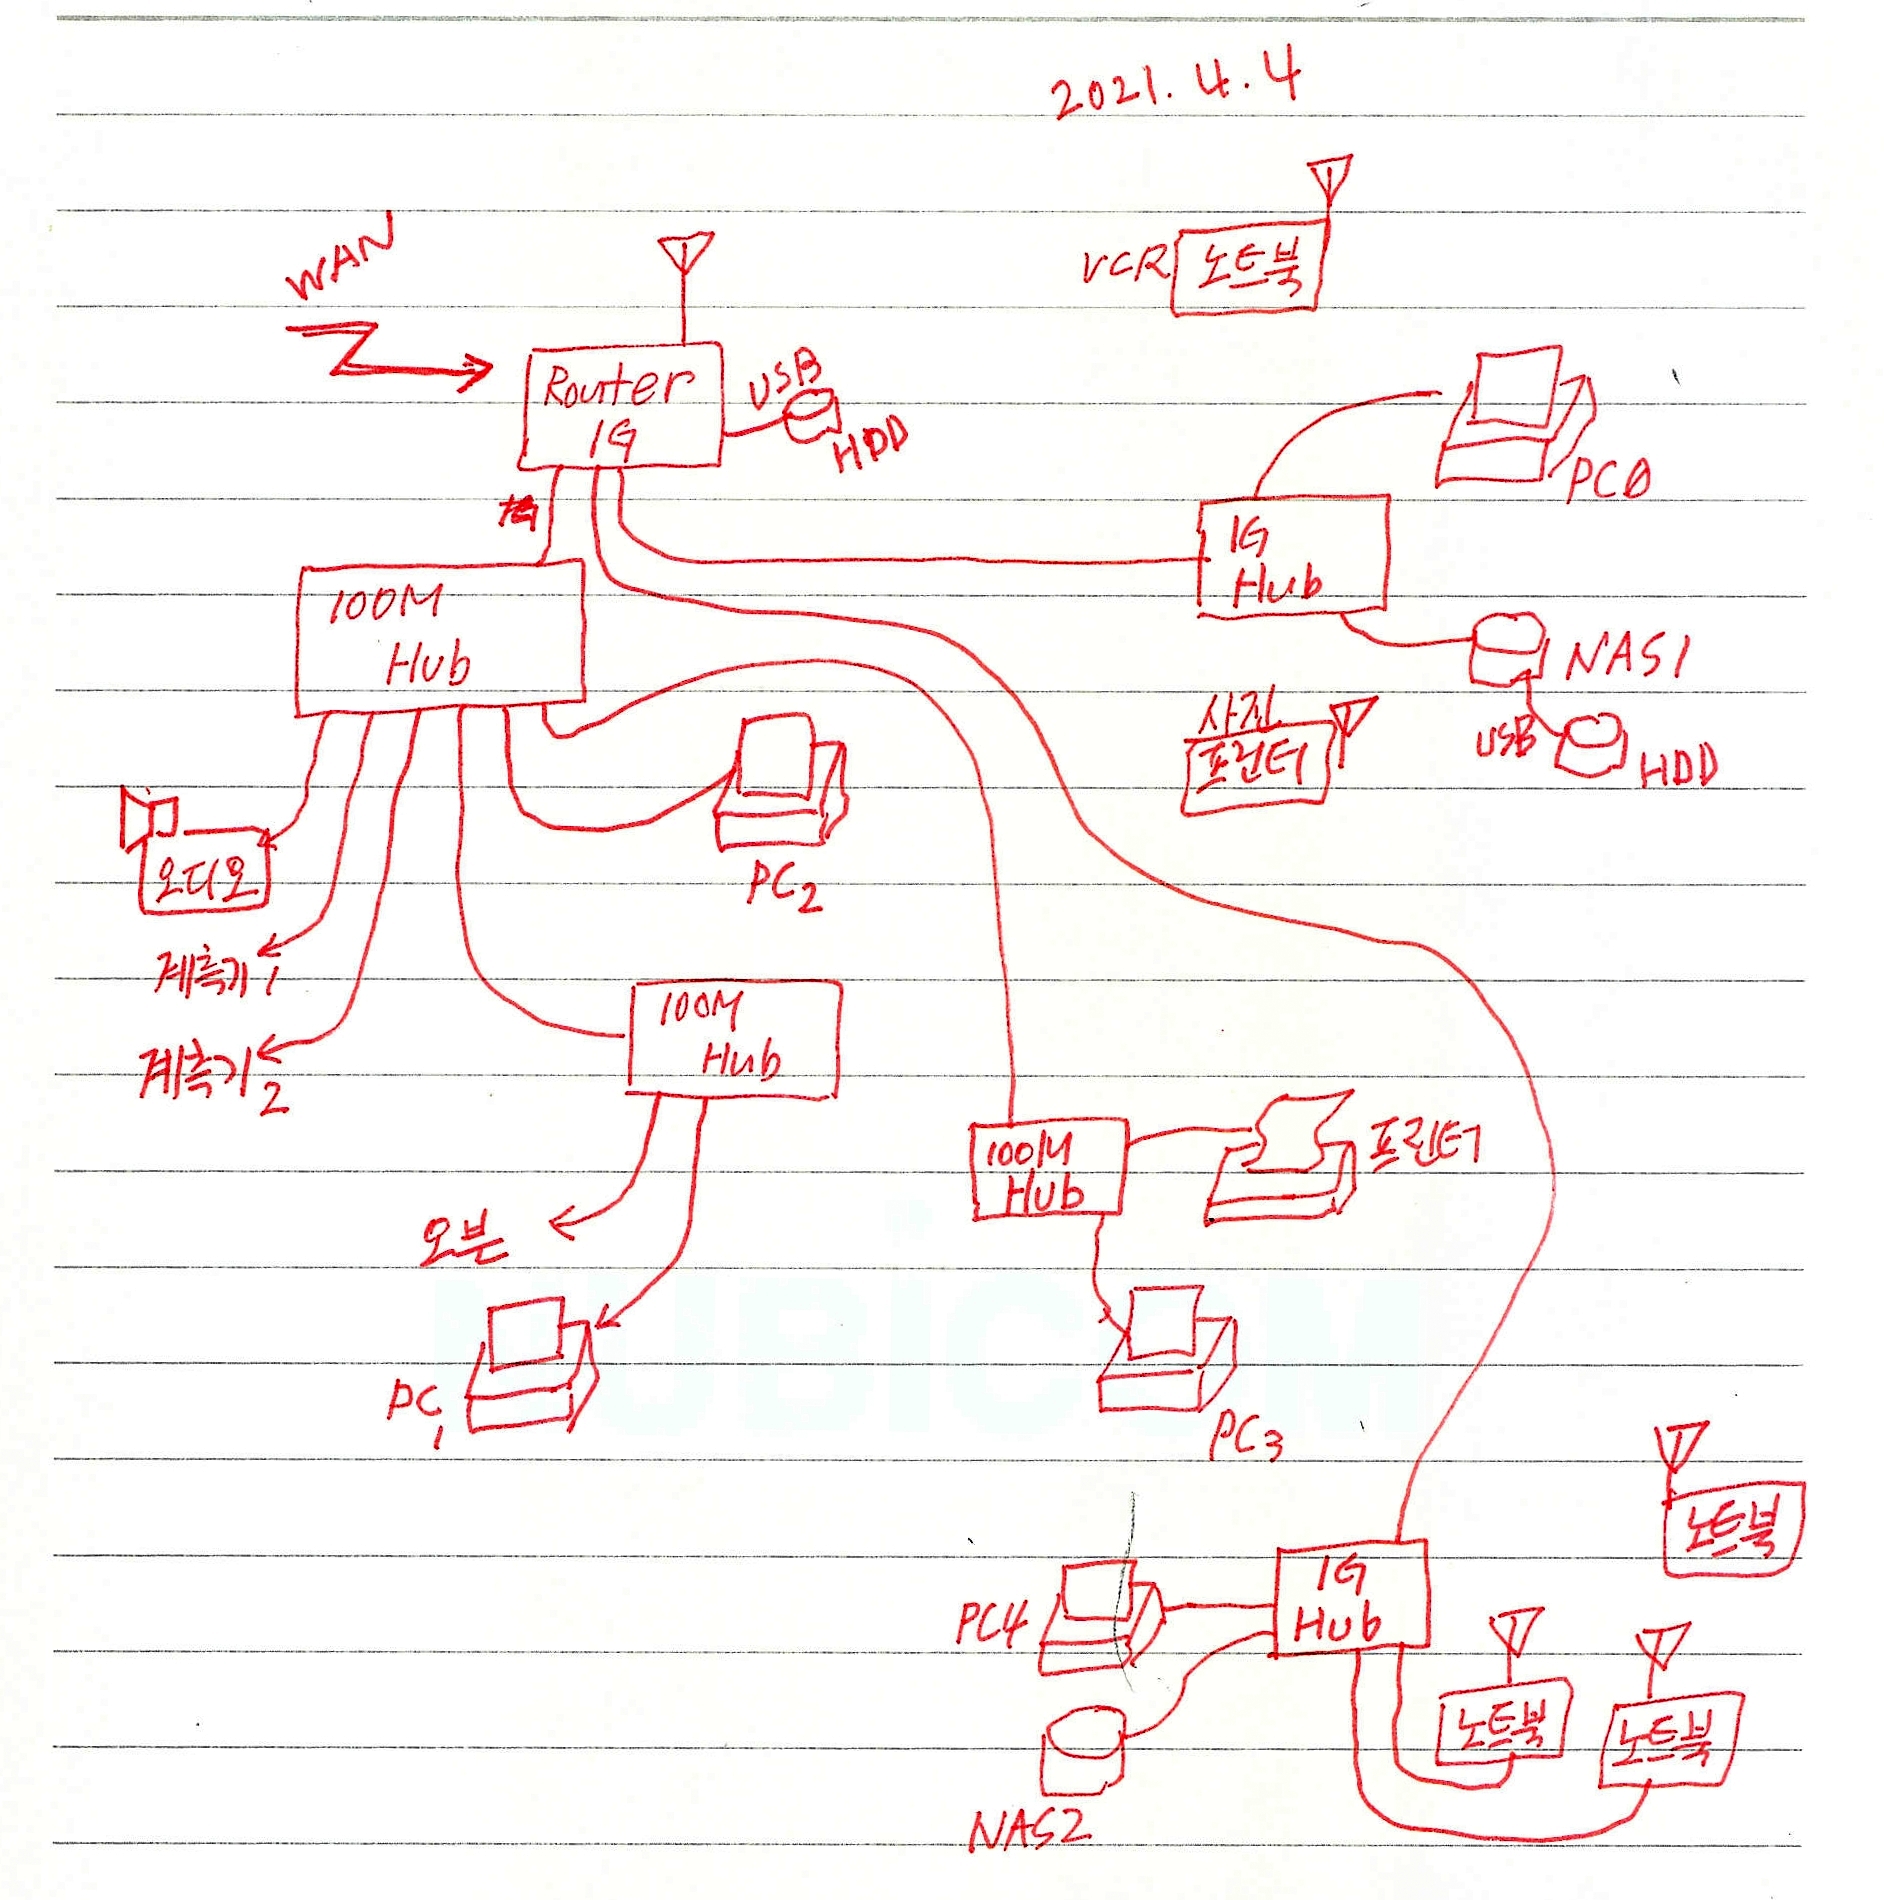 2021. 4. 4
WAN
VCR 노트북
Router
1G
USB
HDD
PC0
1G
Hub
100M
Hub
NAS1
USB
HDD
사진
프린터
오디오
PC2
계측기1
계측기2
100M
Hub
100M
Hub
프린터
오븐
PC1
PC3
노트북
1G
Hub
PC4
노트북
노트북
NAS2